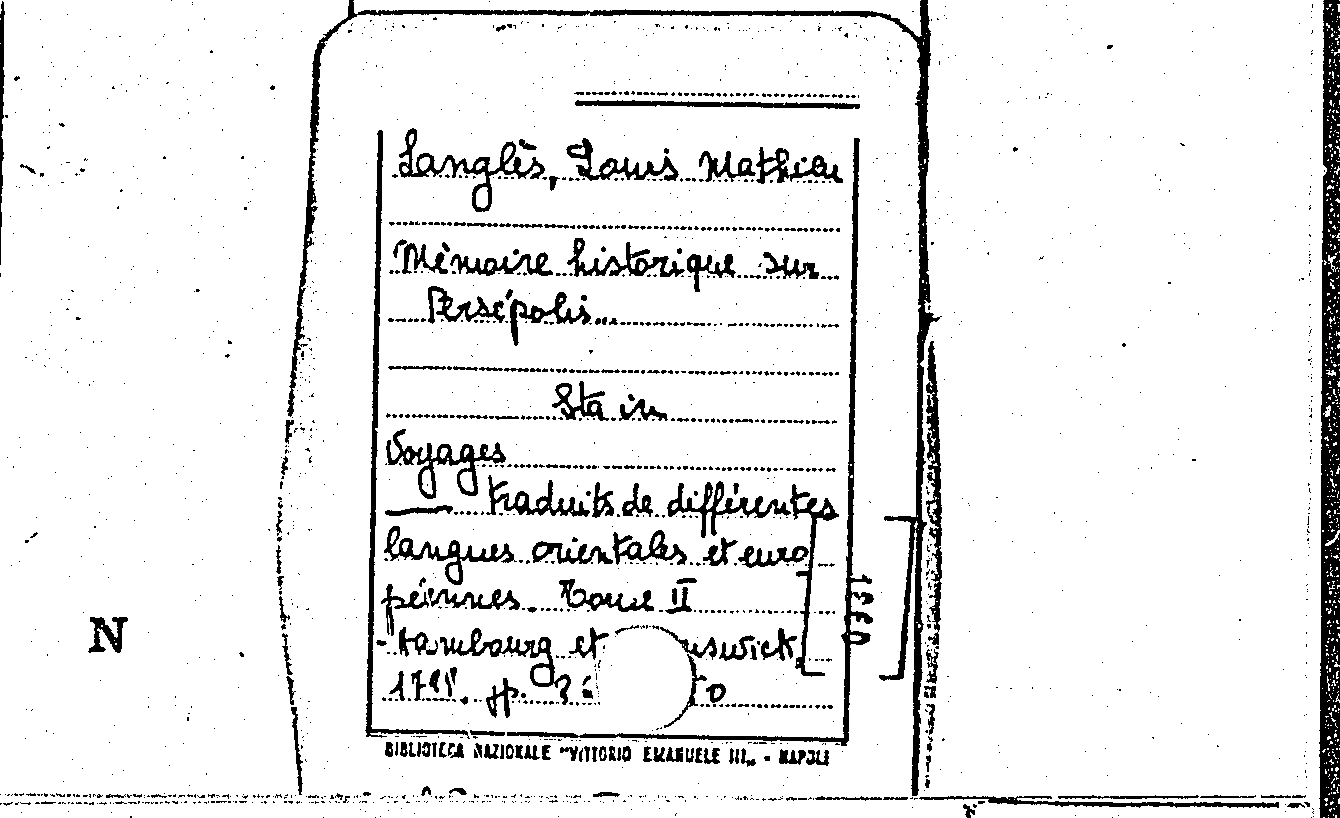 Langlès, Louis Mathieu
Mémoire historique sur
Persépolis...
Sta in
Voyages
— traduits de différentes
langues orientales et euro
péennes. Tome II
Hambourg et
1860
BIBLIOTECA NAZIONALE "VITTORIO EMANUELE III" - NAPOLI
N